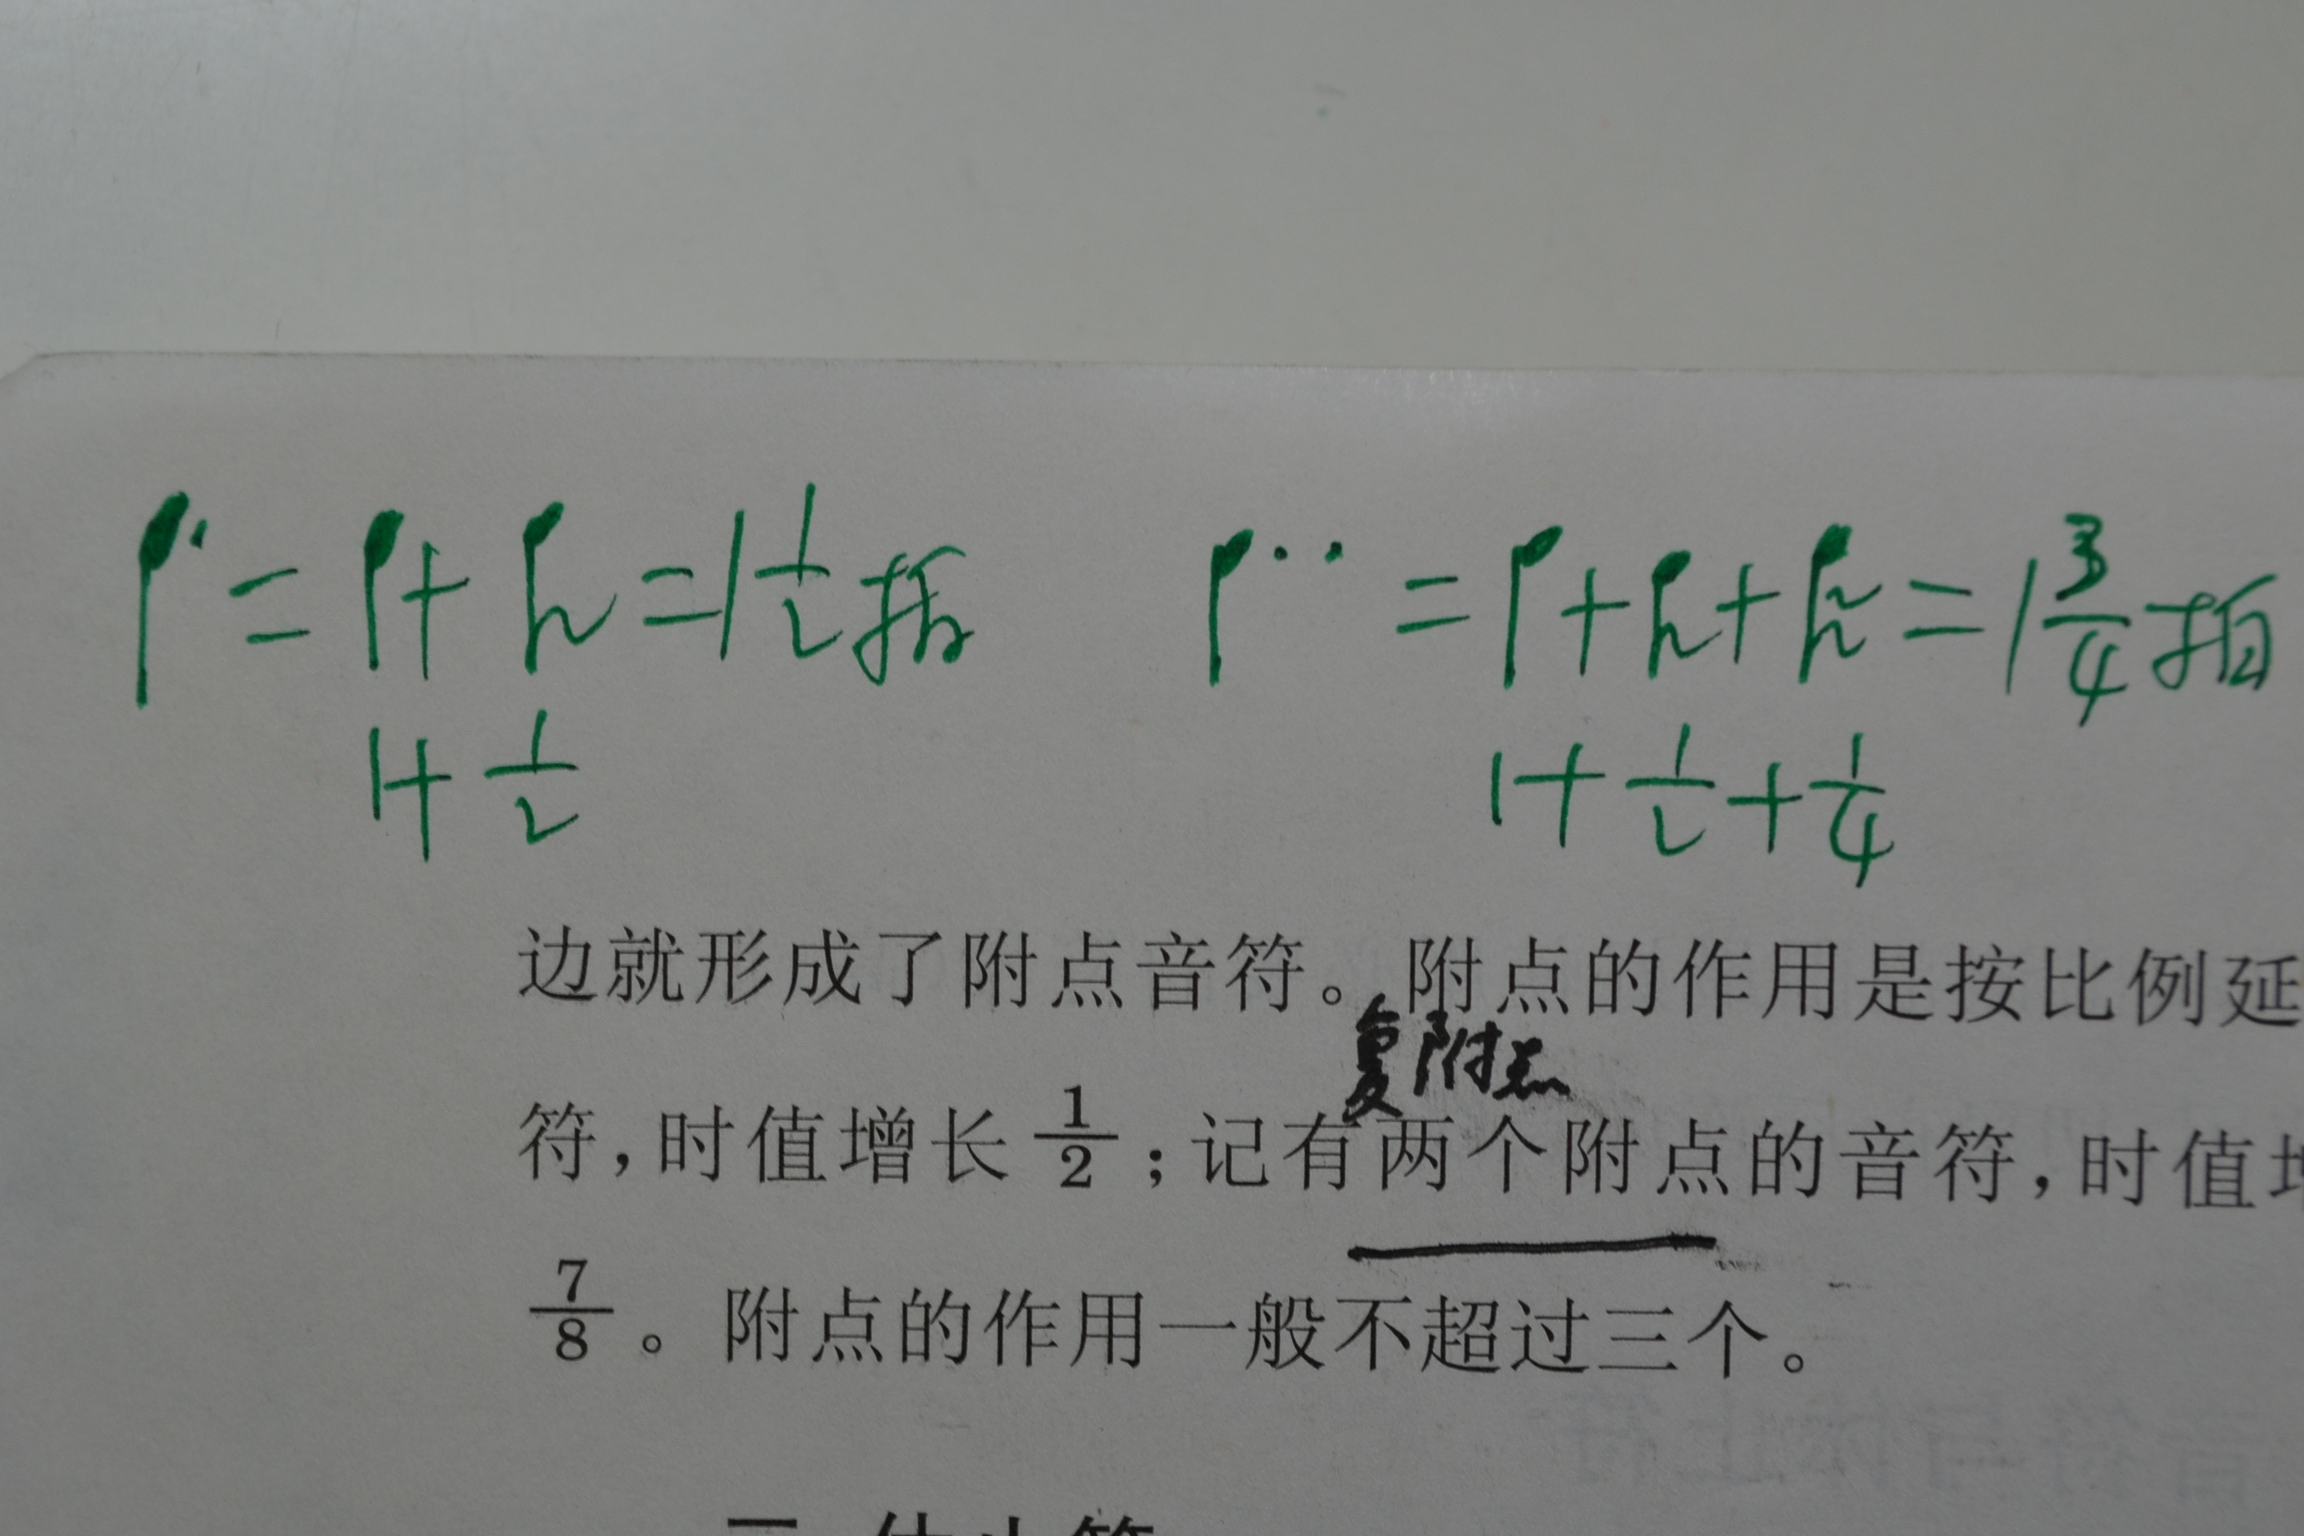 𝅘𝅥. = 𝅘𝅥 + 𝅘𝅥𝅮 = 1 1/2 拍
𝅘𝅥.. = 𝅘𝅥 + 𝅘𝅥𝅮 + 𝅘𝅥𝅯 = 1 3/4 拍
1 + 1/2
1 + 1/2 + 1/4
边就形成了附点音符。附点的作用是按比例延
复附点
符,时值增长 1/2 ;记有两个附点的音符,时值增
7/8 。附点的作用一般不超过三个。